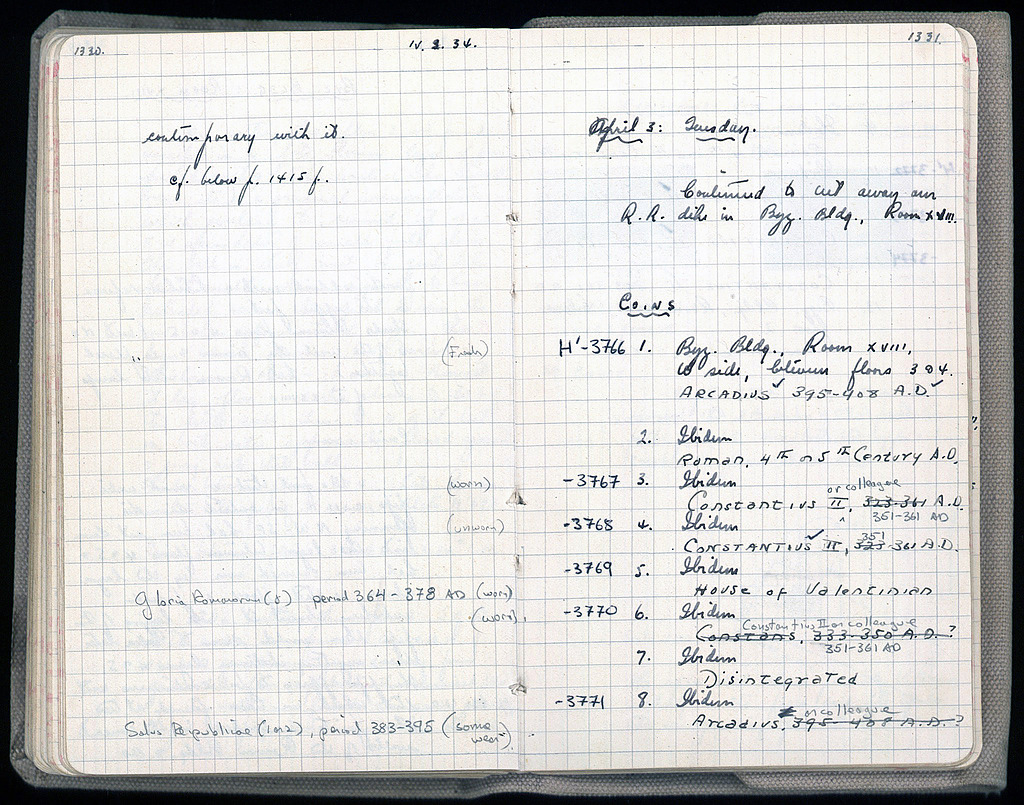 1330.
IV. 3. 34.
contemporary with it.
cf. below p. 1415 f.
(Fresh)
(worn)
(unworn)
Gloria Romanorum (8) period 364-378 AD (worn)
(worn).
Salus Reipublicae (1 or 2), period 383-395 (some
wear).
1331.
April 3: Tuesday.
Continued to cut away our
R.R. dike in Byz. Bldg., Room XVIII.
Coins
H'-3766 1. Byz. Bldg., Room XVIII,
W side, between floors 3 & 4.
ARCADIUS ✓ 395-408 A.D. ✓
2. Ibidem
Roman, 4TH or 5TH Century A.D.
-3767 3. Ibidem
or colleague
Constantius II, 323-361 A.D.
351-361 AD
-3768 4. Ibidem
351
CONSTANTIUS ✓ II, 323-361 A.D.
-3769 5. Ibidem
House of Valentinian
-3770 6. Ibidem
Constantius II or colleague
Constans, 333-350 A.D.?
351-361 AD
7. Ibidem
Disintegrated
-3771 8. Ibidem
or colleague
Arcadius, 395-408 A.D.?